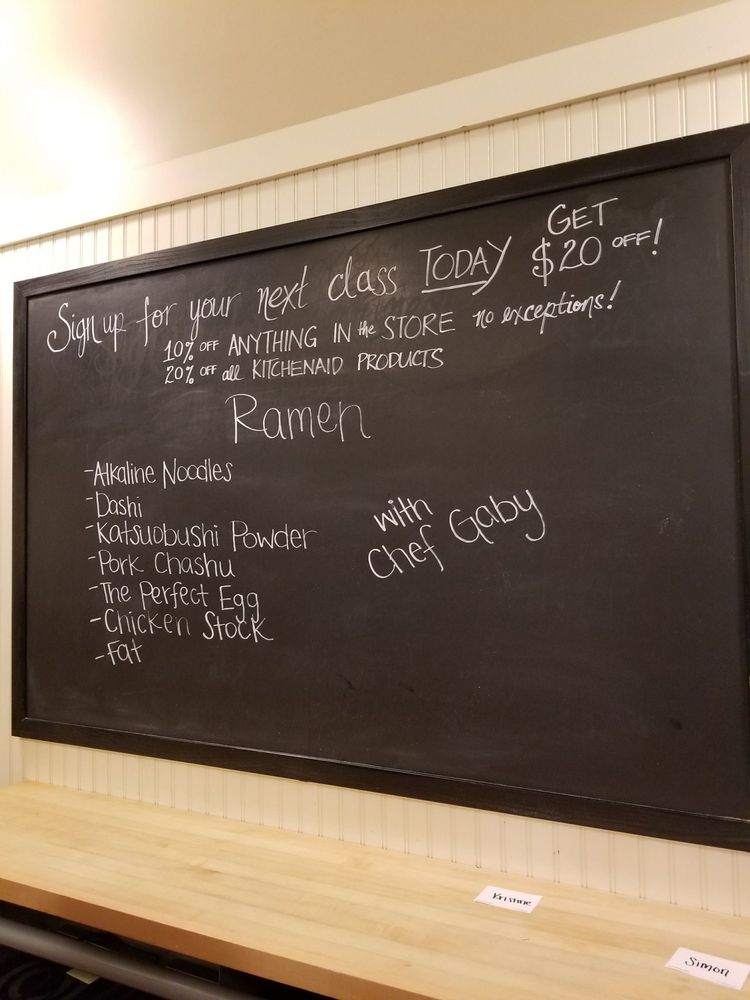 Sign up for your next class TODAY GET $20 OFF!
10% OFF ANYTHING IN the STORE no exceptions!
20% OFF all KITCHENAID PRODUCTS
Ramen
-Alkaline Noodles
-Dashi
-Katsuobushi Powder
-Pork Chashu
-The Perfect Egg
-Chicken Stock
-Fat
with
Chef Gaby
Kristine
Simon